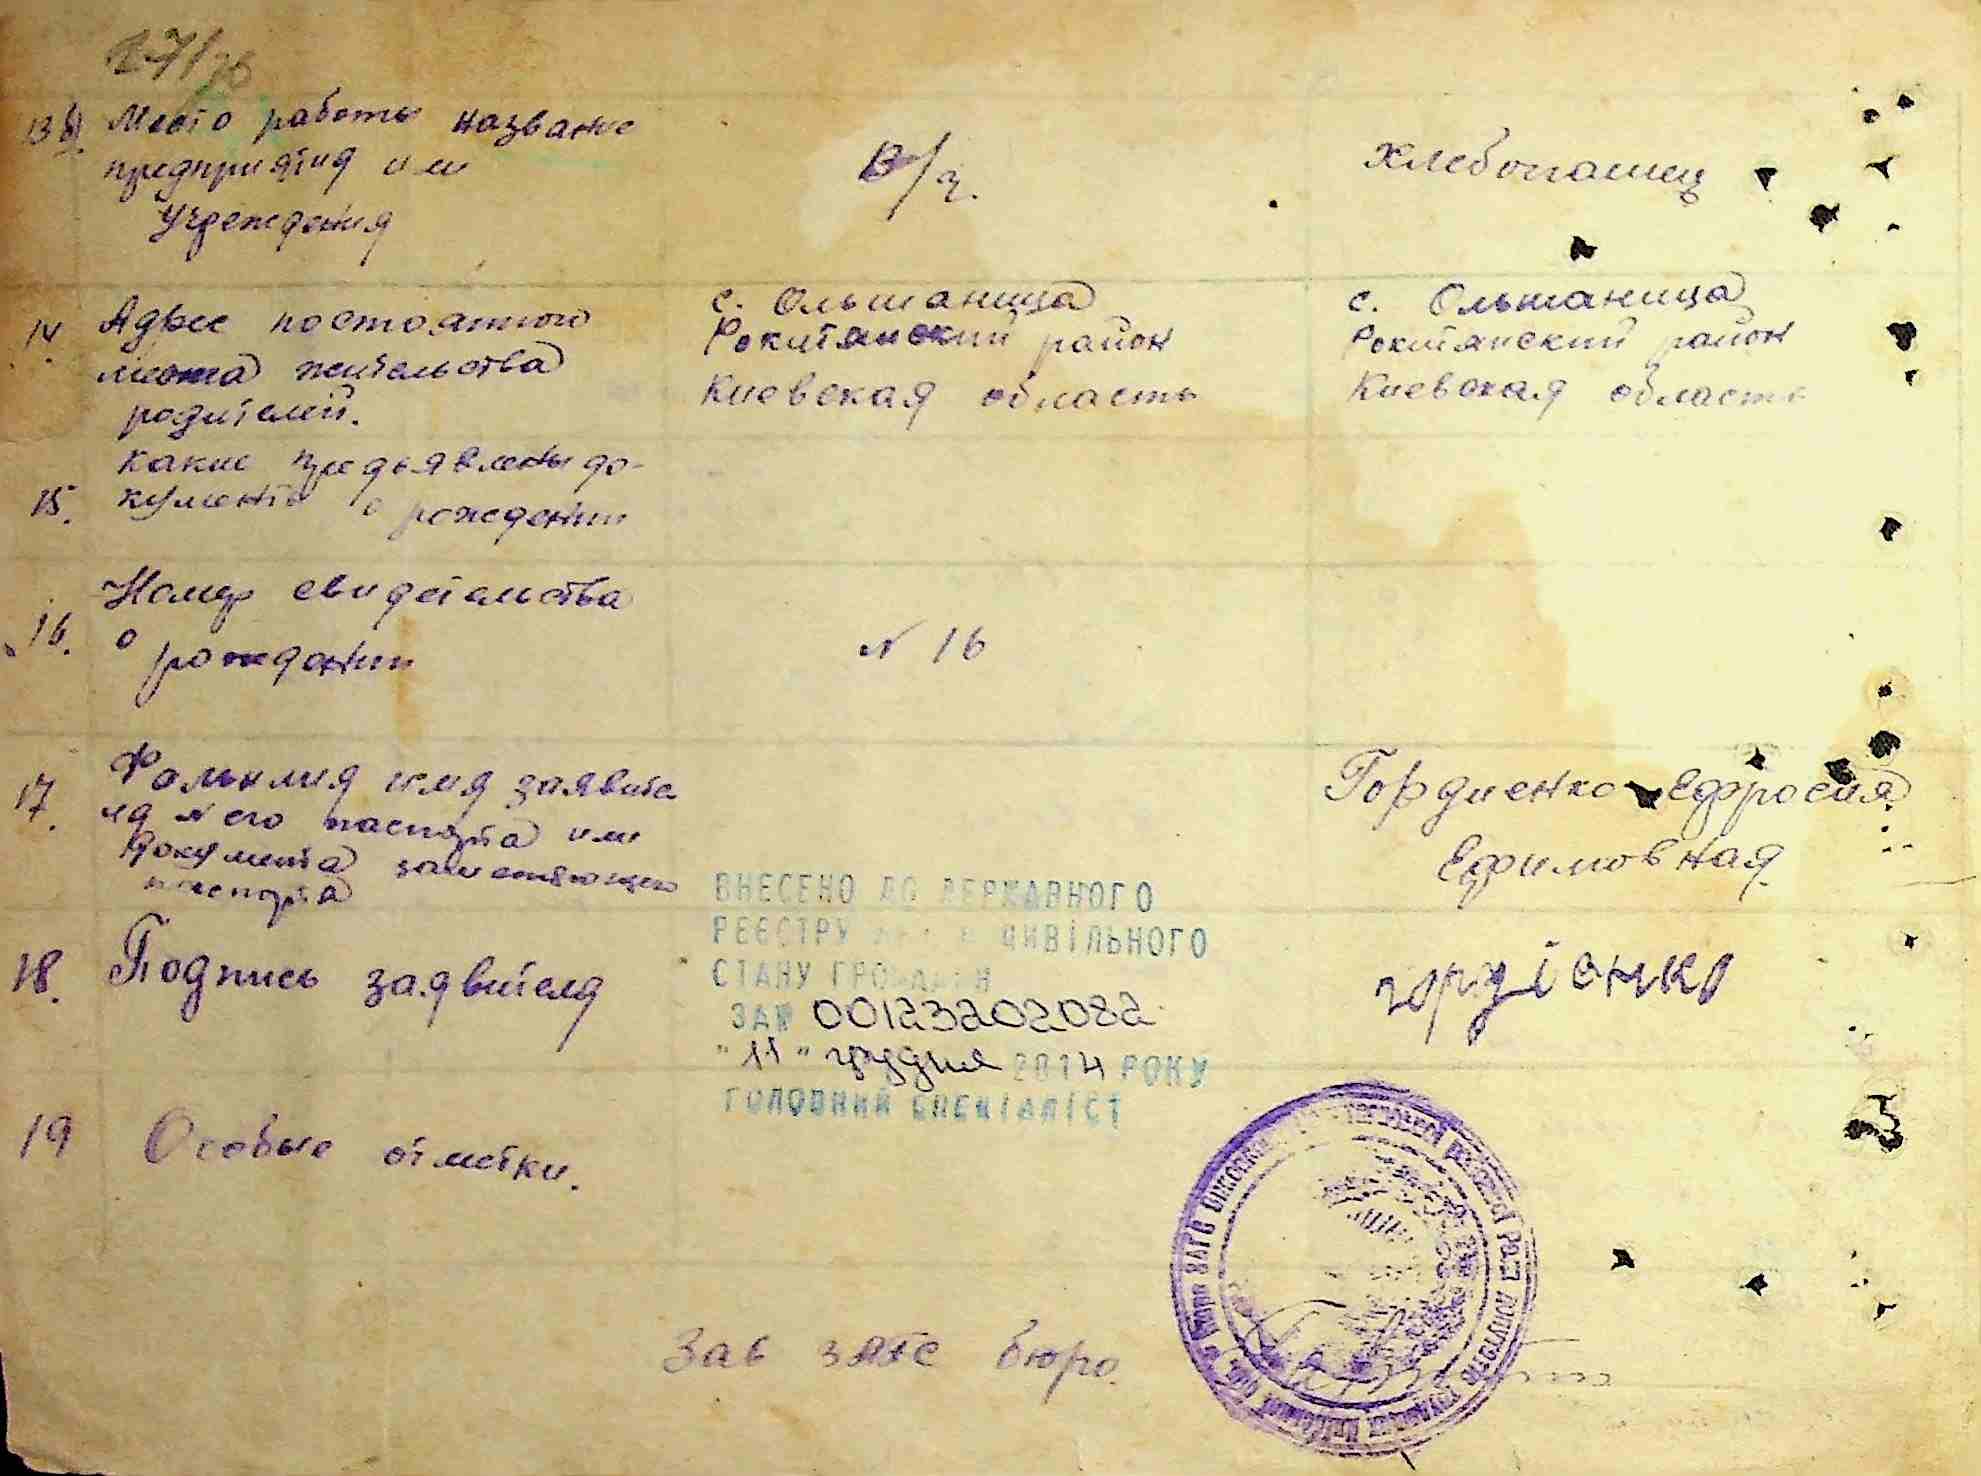 27/76
13 б). Место работы название
предприятия или
учреждения
В/з.
хлебопашец
14. Адрес постоянного
места жительства
родителей.
с. Ольшаница
Рокитянский район
Киевская область
с. Ольшаница
Рокитянский район
Киевская область
15. Какие предьявлены до-
кументы о рождении
16. Номер свидетельства
о рождении
N 16
17. Фамилия имя заявите
ля N его паспорта или
документа заменяющего
паспорта
Гордиенко Ефросия
Ефимовная
18. Подпись заявителя
гордієнко
ВНЕСЕНО ДО ДЕРЖАВНОГО
РЕЄСТРУ ЦИВІЛЬНОГО
СТАНУ ГРОМАДЯН
ЗА № 00123202082
"11" грудня 2014 РОКУ
ГОЛОВНИЙ СПЕЦІАЛІСТ
19 Особые отметки.
Зав ЗАГС бюро.
бюро ЗАГС районної Ради депутатів трудящих Київської обл.